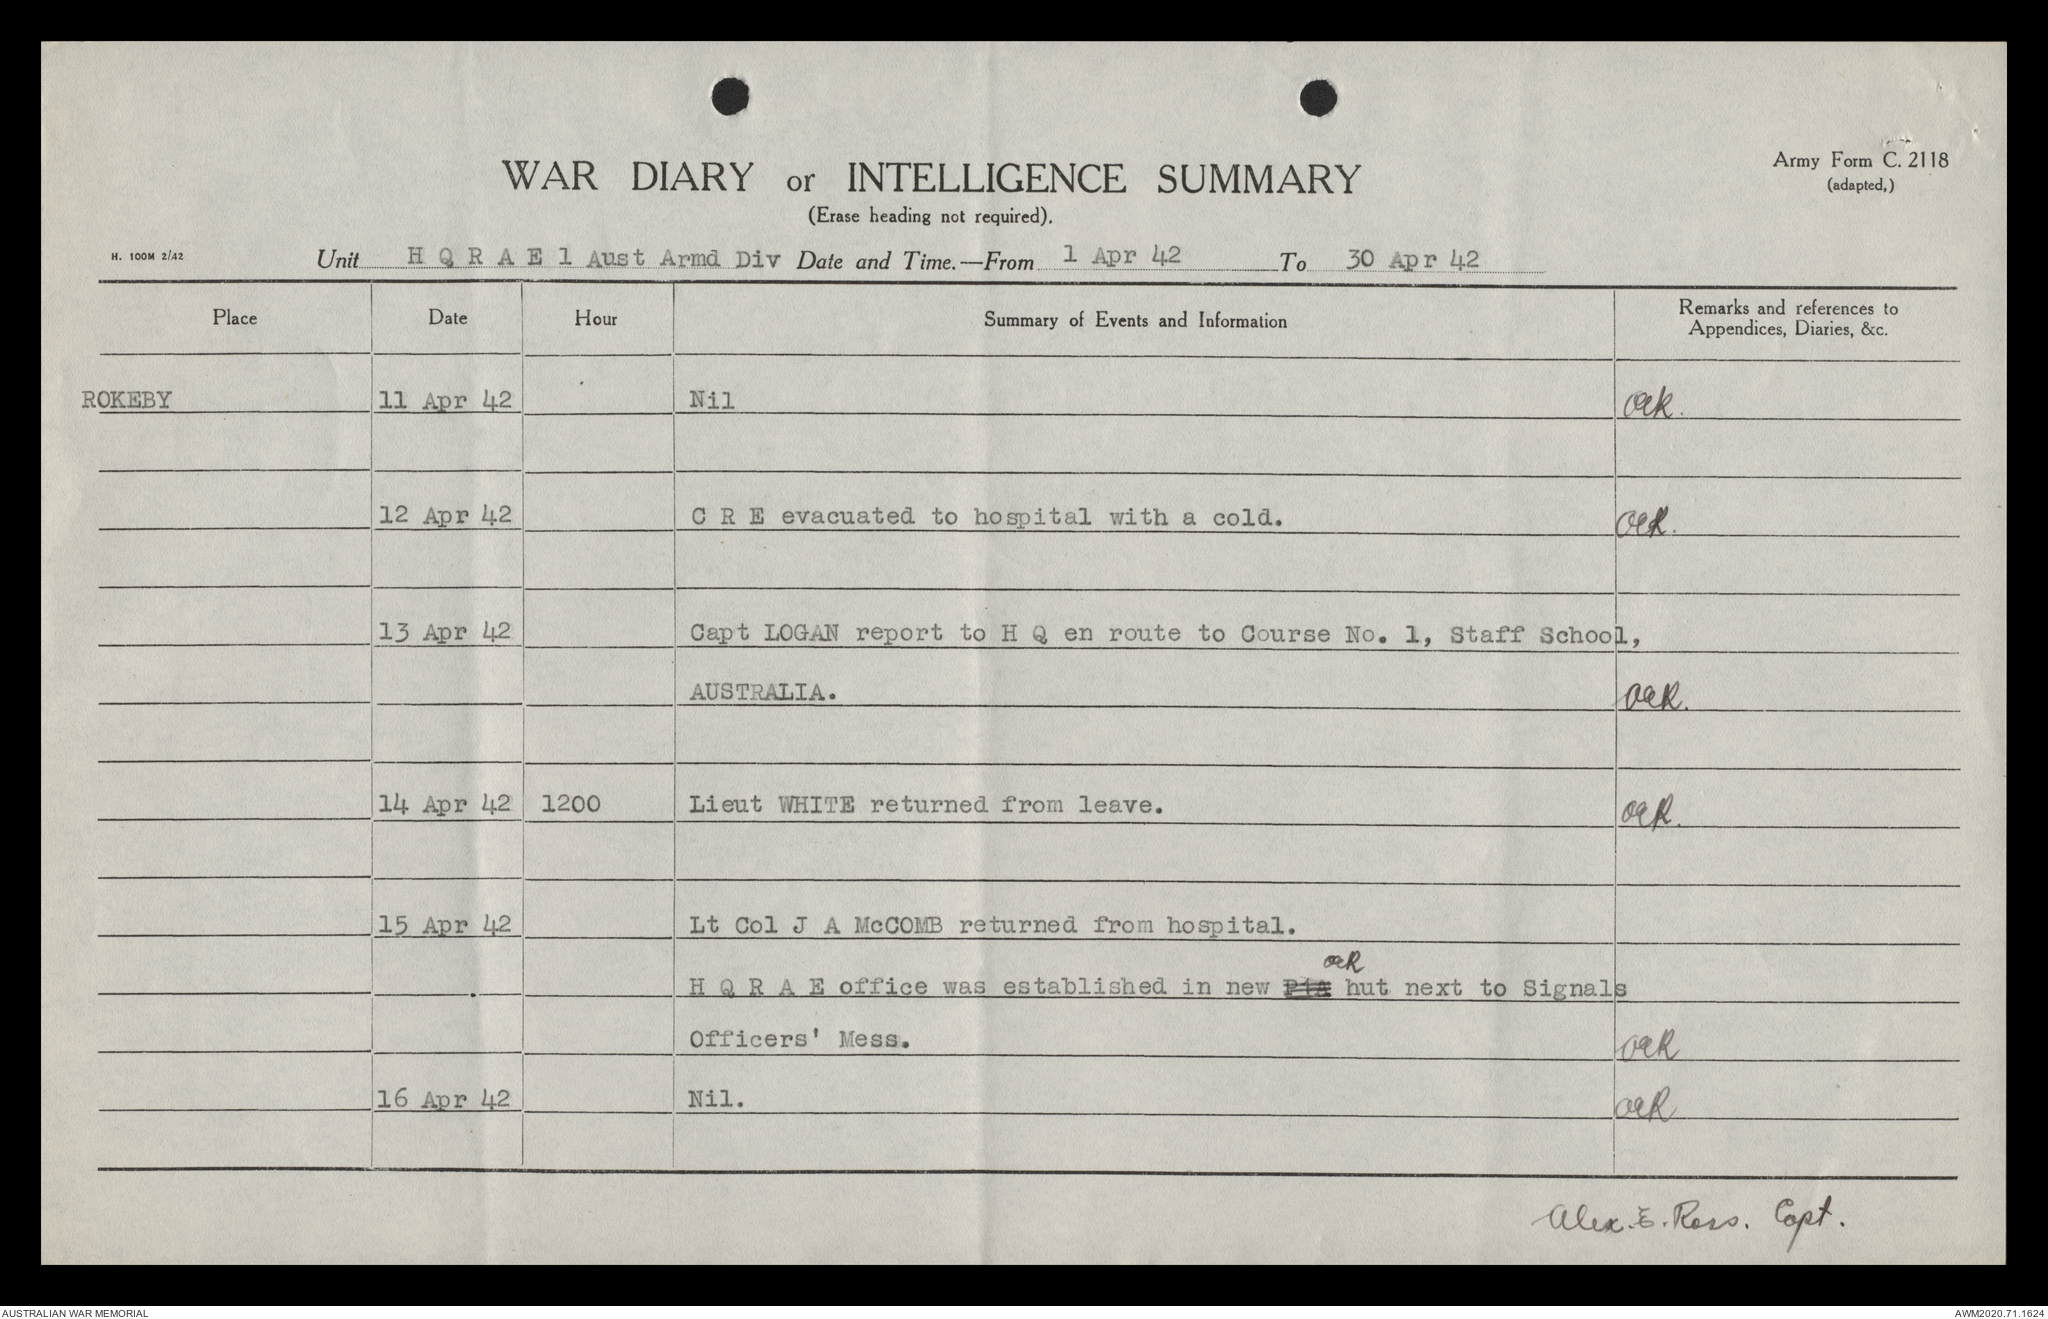 WAR DIARY or INTELLIGENCE SUMMARY
(Erase heading not required).
Army Form C. 2118
(adapted,)
H. 100M 2/42
Unit H Q R A E 1 Aust Armd Div Date and Time.—From 1 Apr 42 To 30 Apr 42
Place Date Hour Summary of Events and Information Remarks and references to
Appendices, Diaries, &c.
ROKEBY 11 Apr 42 Nil aeR.
12 Apr 42 C R E evacuated to hospital with a cold. aeR.
13 Apr 42 Capt LOGAN report to H Q en route to Course No. 1, Staff School,
AUSTRALIA. aeR.
14 Apr 42 1200 Lieut WHITE returned from leave. aeR.
15 Apr 42 Lt Col J A McCOMB returned from hospital.
aeR
H Q R A E office was established in new hut next to Signals
Officers' Mess. aeR
16 Apr 42 Nil. aeR
Alex. E. Ross. Capt.
AUSTRALIAN WAR MEMORIAL
AWM2020.71.1624